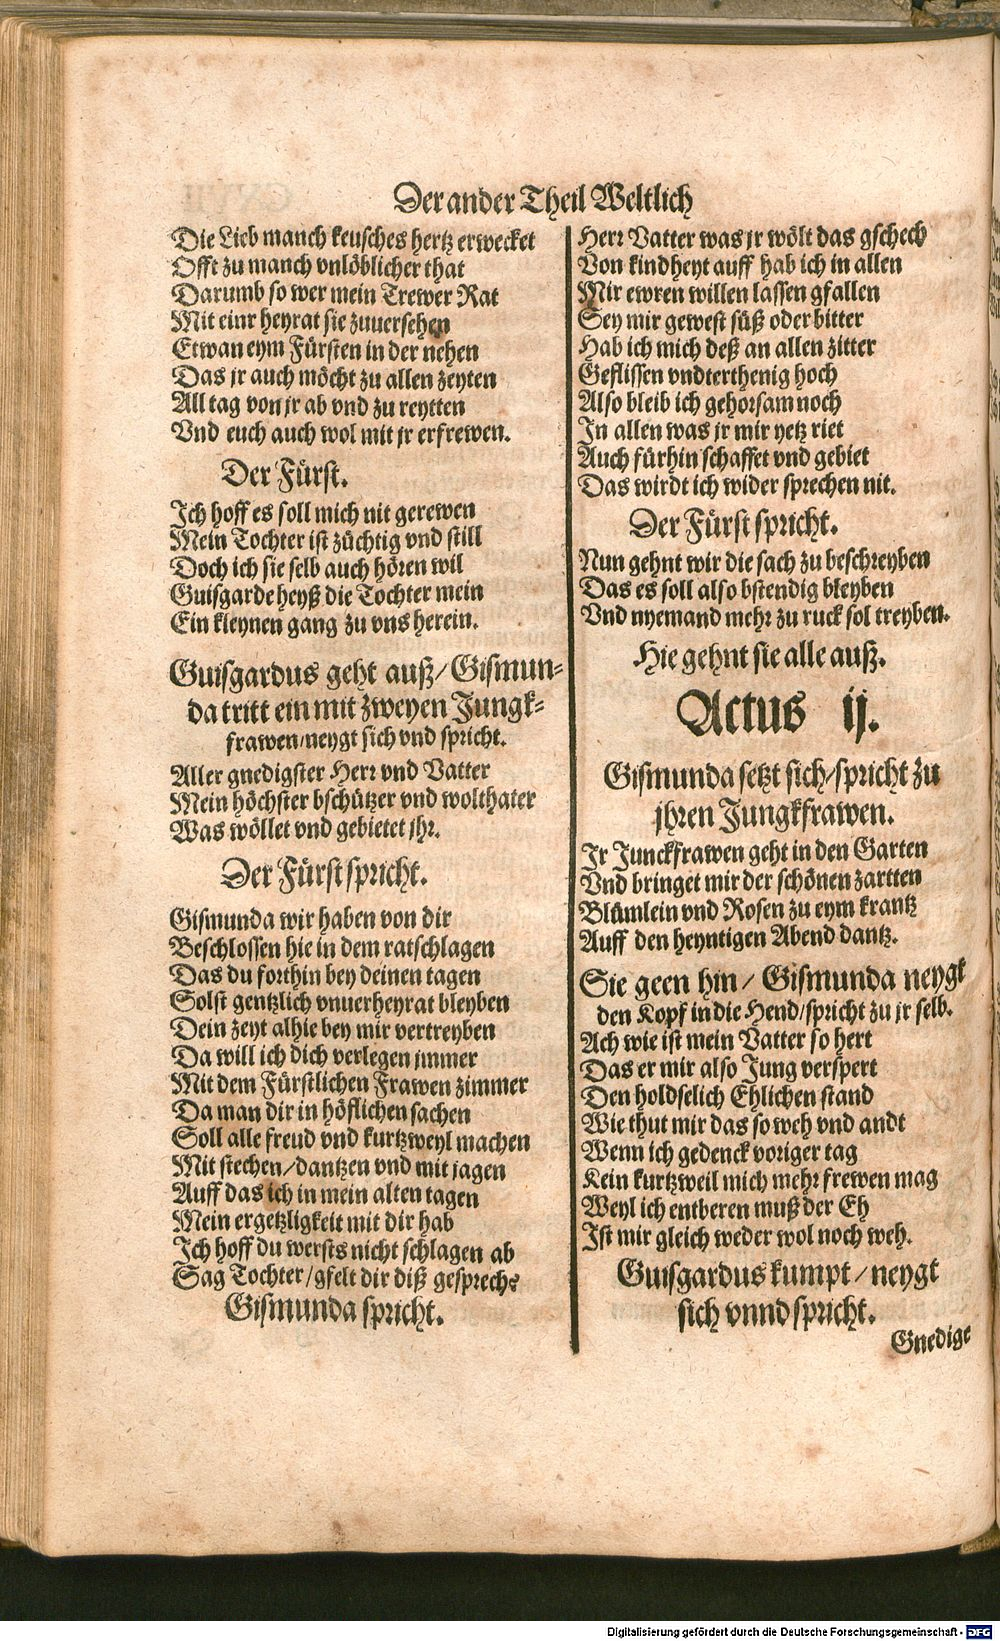 Der ander Theil Weltlich
Die Lieb manch keusches hertz erwecket
Offt zu manch vnlöblicher that
Darumb so wer mein Trewer Rat
Mit einr heyrat sie zuuersehen
Etwan eym Fürsten in der nehen
Das jr auch möcht zu allen zeyten
All tag von jr ab vnd zu reytten
Vnd euch auch wol mit jr erfrewen.
Der Fürst.
Ich hoff es soll mich nit gerewen
Mein Tochter ist züchtig vnd still
Doch ich sie selb auch hören wil
Guisgarde heyß die Tochter mein
Ein kleynen gang zu vns herein.
Guisgardus geht auß/ Gismun-
da tritt ein mit zweyen Jungk-
frawen/neygt sich vnd spricht.
Aller gnedigster Herr vnd Vatter
Mein höchster bschützer vnd wolthater
Was wöllet vnd gebietet jhr.
Der Fürst spricht.
Gismunda wir haben von dir
Beschlossen hie in dem ratschlagen
Das du forthin bey deinen tagen
Solst gentzlich vnuerheyrat bleyben
Dein zeyt alhie bey mir vertreyben
Da will ich dich verlegen jmmer
Mit dem Fürstlichen Frawen zimmer
Da man dir in höflichen sachen
Soll alle freud vnd kurtzweyl machen
Mit stechen/dantzen vnd mit jagen
Auff das ich in mein alten tagen
Mein ergetzligkeit mit dir hab
Ich hoff du wersts nicht schlagen ab
Sag Tochter/gfelt dir diß gesprech?
Gismunda spricht.
Herr Vatter was jr wölt das gschech
Von kindheyt auff hab ich in allen
Mir ewren willen lassen gfallen
Sey mir gewest süß oder bitter
Hab ich mich deß an allen zitter
Geflissen vndterthenig hoch
Also bleib ich gehorsam noch
In allen was jr mir yetz riet
Auch fürhin schaffet vnd gebiet
Das wirdt ich wider sprechen nit.
Der Fürst spricht.
Nun gehnt wir die sach zu beschreyben
Das es soll also bstendig bleyben
Vnd nyemand mehr zu ruck sol treyben.
Hie gehnt sie alle auß.
Actus ij.
Gismunda setzt sich/spricht zu
jhren Jungkfrawen.
Ir Junckfrawen geht in den Garten
Vnd bringet mir der schönen zartten
Blümlein vnd Rosen zu eym krantz
Auff den heyntigen Abend dantz.
Sie geen hin/ Gismunda neygt
den Kopf in die Hend/spricht zu jr selb.
Ach wie ist mein Vatter so hert
Das er mir also Jung verspert
Den holdselich Ehlichen stand
Wie thut mir das so weh vnd andt
Wenn ich gedenck voriger tag
Kein kurtzweil mich mehr frewen mag
Weyl ich entberen muß der Eh
Ist mir gleich weder wol noch weh.
Guisgardus kumpt/neygt
sich vnnd spricht.
Gnedige
Digitalisierung gefördert durch die Deutsche Forschungsgemeinschaft - DFG